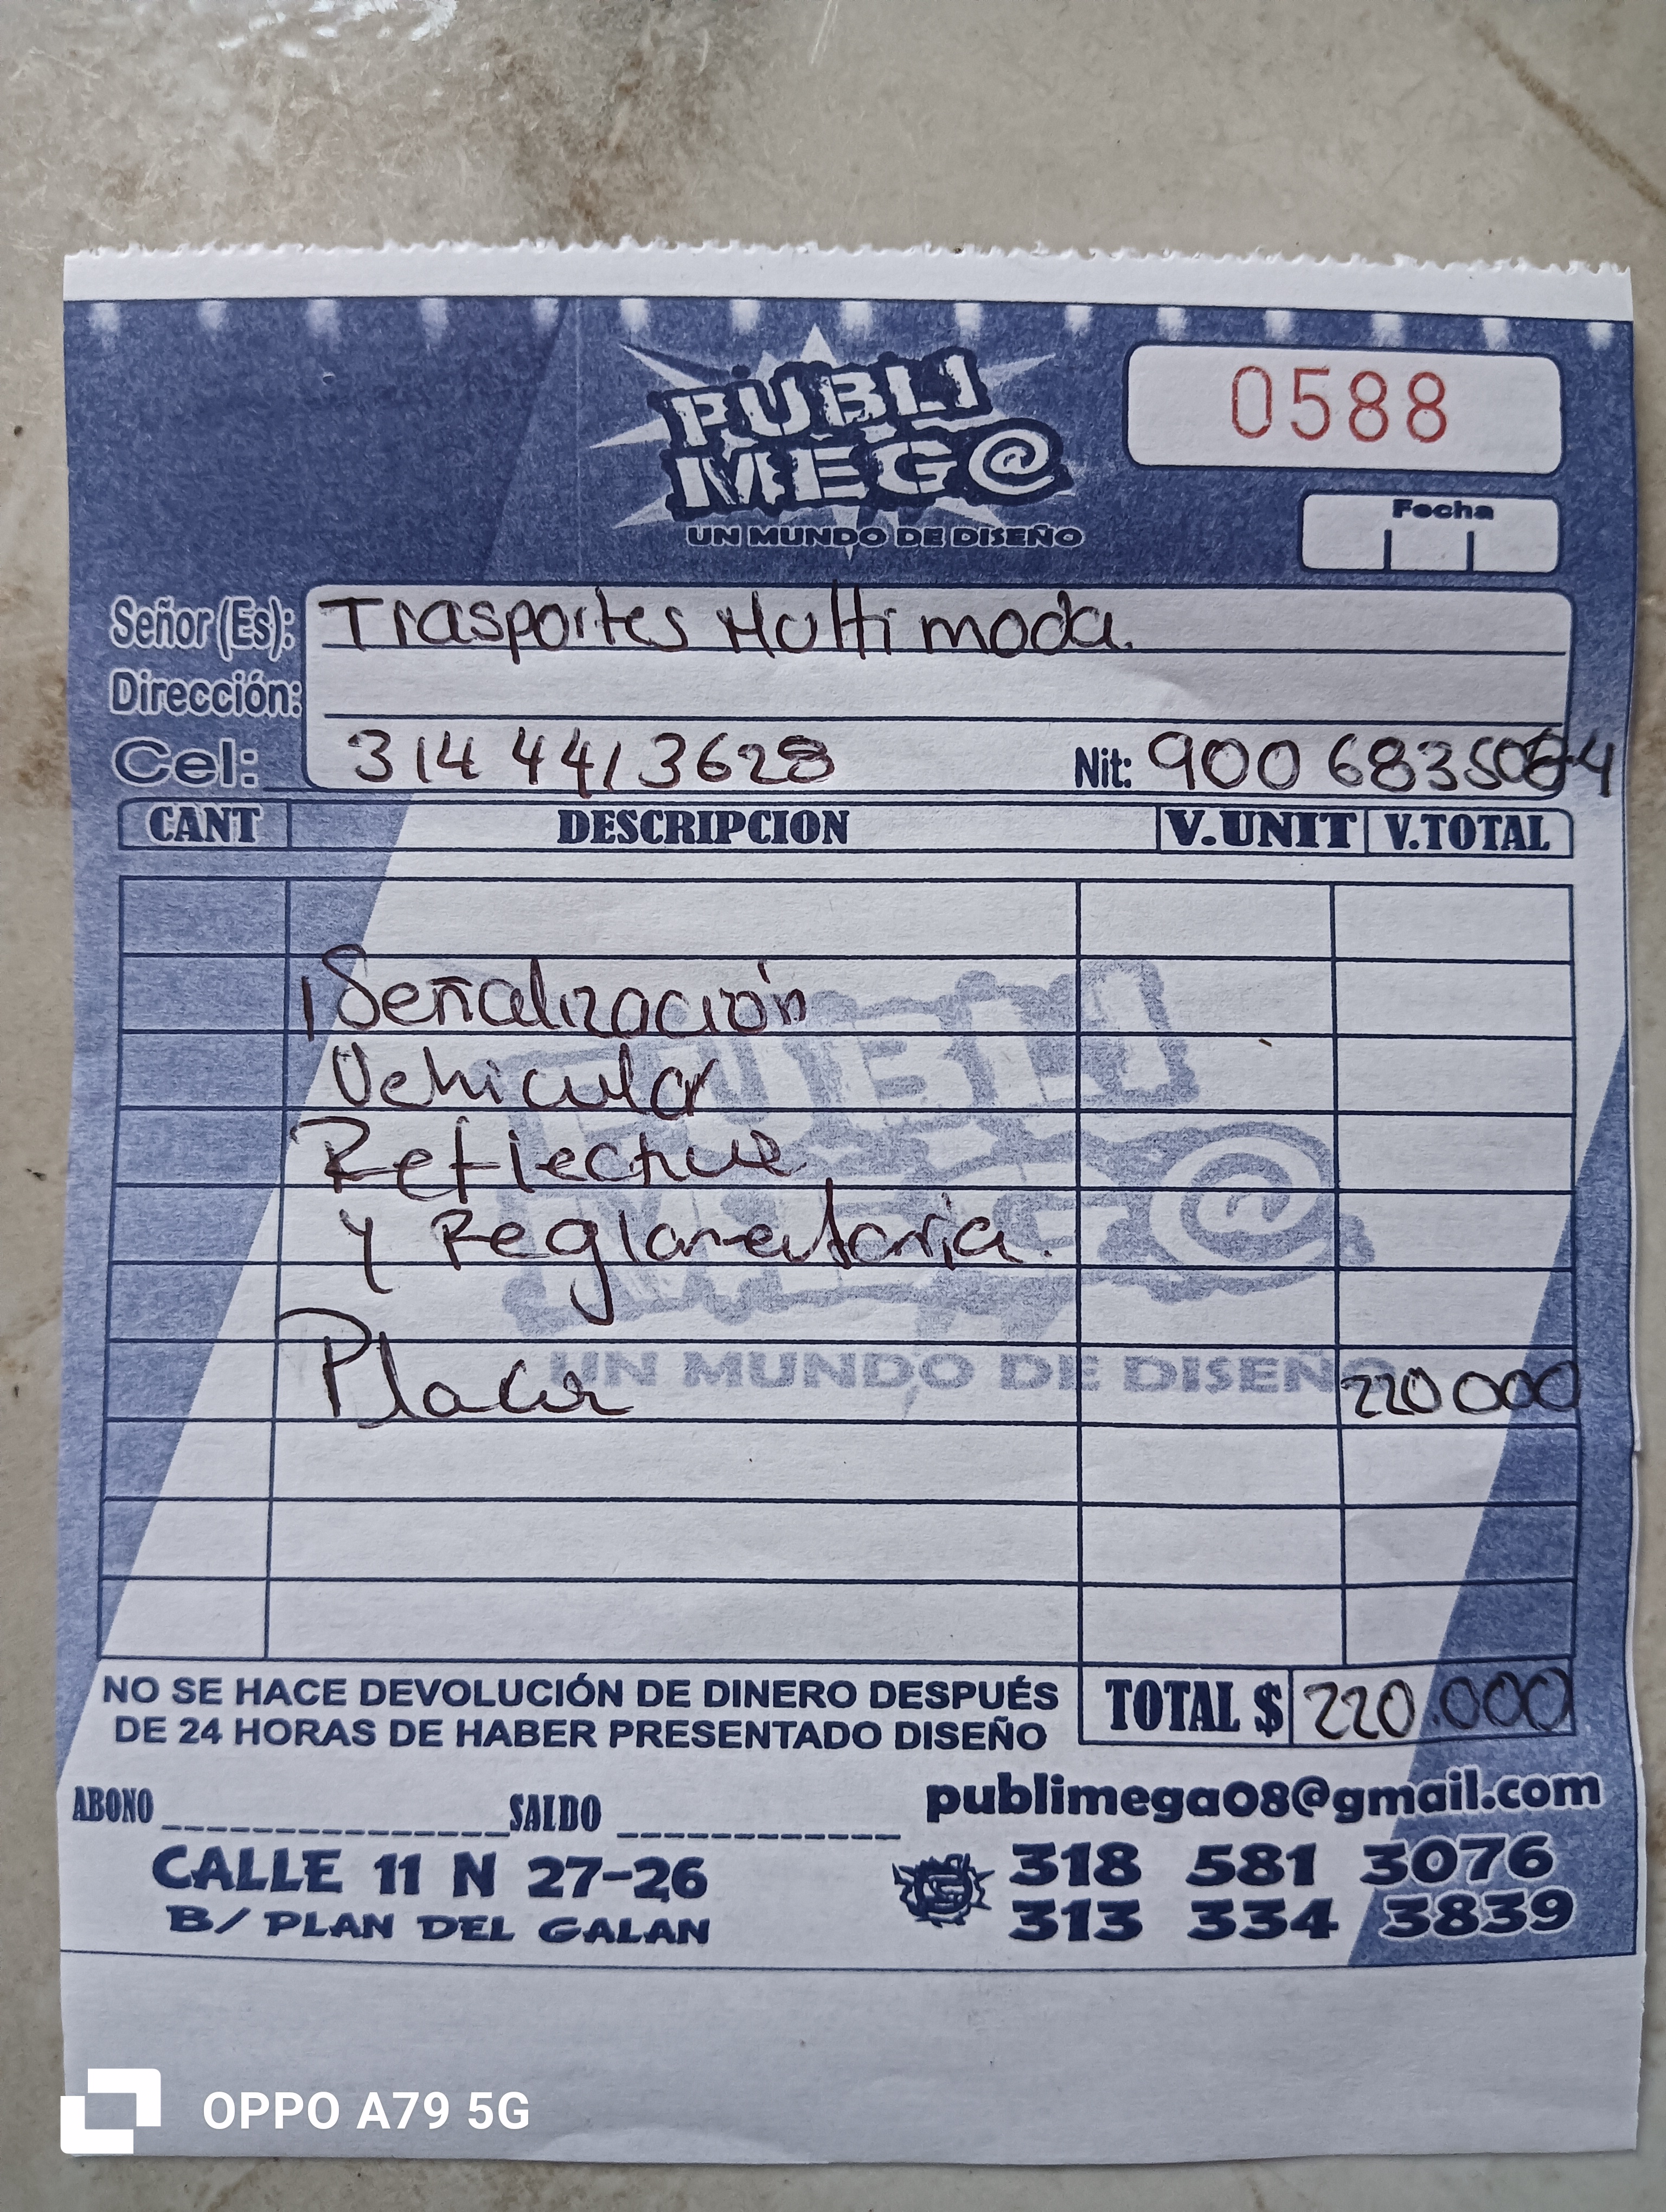 PUBLI
MEG@
UN MUNDO DE DISEÑO
0588
Fecha
Señor(Es): Trasportes Multimoda.
Dirección:
Cel: 314 441 3628 Nit: 900 683508-4
CANT DESCRIPCION V.UNIT V.TOTAL
1 Señalización
Vehicular
Reflective
y Reglamentaria.
Placa 220 000
PUBLI
MEG@
UN MUNDO DE DISEÑO
NO SE HACE DEVOLUCIÓN DE DINERO DESPUÉS
DE 24 HORAS DE HABER PRESENTADO DISEÑO
TOTAL $ 220.000
ABONO SALDO
publimega08@gmail.com
CALLE 11 N 27-26
B/ PLAN DEL GALAN
318 581 3076
313 334 3839
OPPO A79 5G